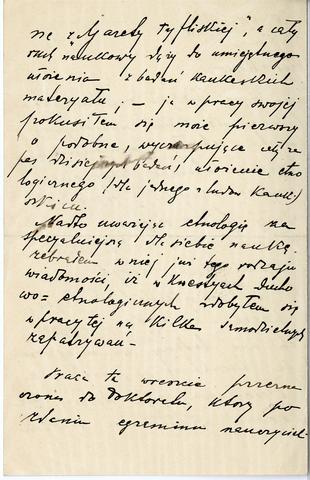 nę z "Gazety tyfliskiej", a cały
ruch naukowy dąży do umiejętnego
ułożenia z badań kaukaskich
materyału, – ja w pracy swojej
pokusiłem się może pierwszy
o podobne, wyczerpujące
dzisiejszych badań, ułożenie etno
logicznego (dla jednego z ludów kauk.)
Nadto uważając etnologię za
specyalniejszą dla siebie naukę,
zebrałem w niej już tego rodzaju
wiadomości, iż w kwestyach ducho
wo = etnologicznych zdobyłem się
w pracy tej na kilka samodzielnych
zapatrywań –
Praca ta wreszcie przezna
czona do doktoratu, który po
zdaniu egzaminu nauczyciel-